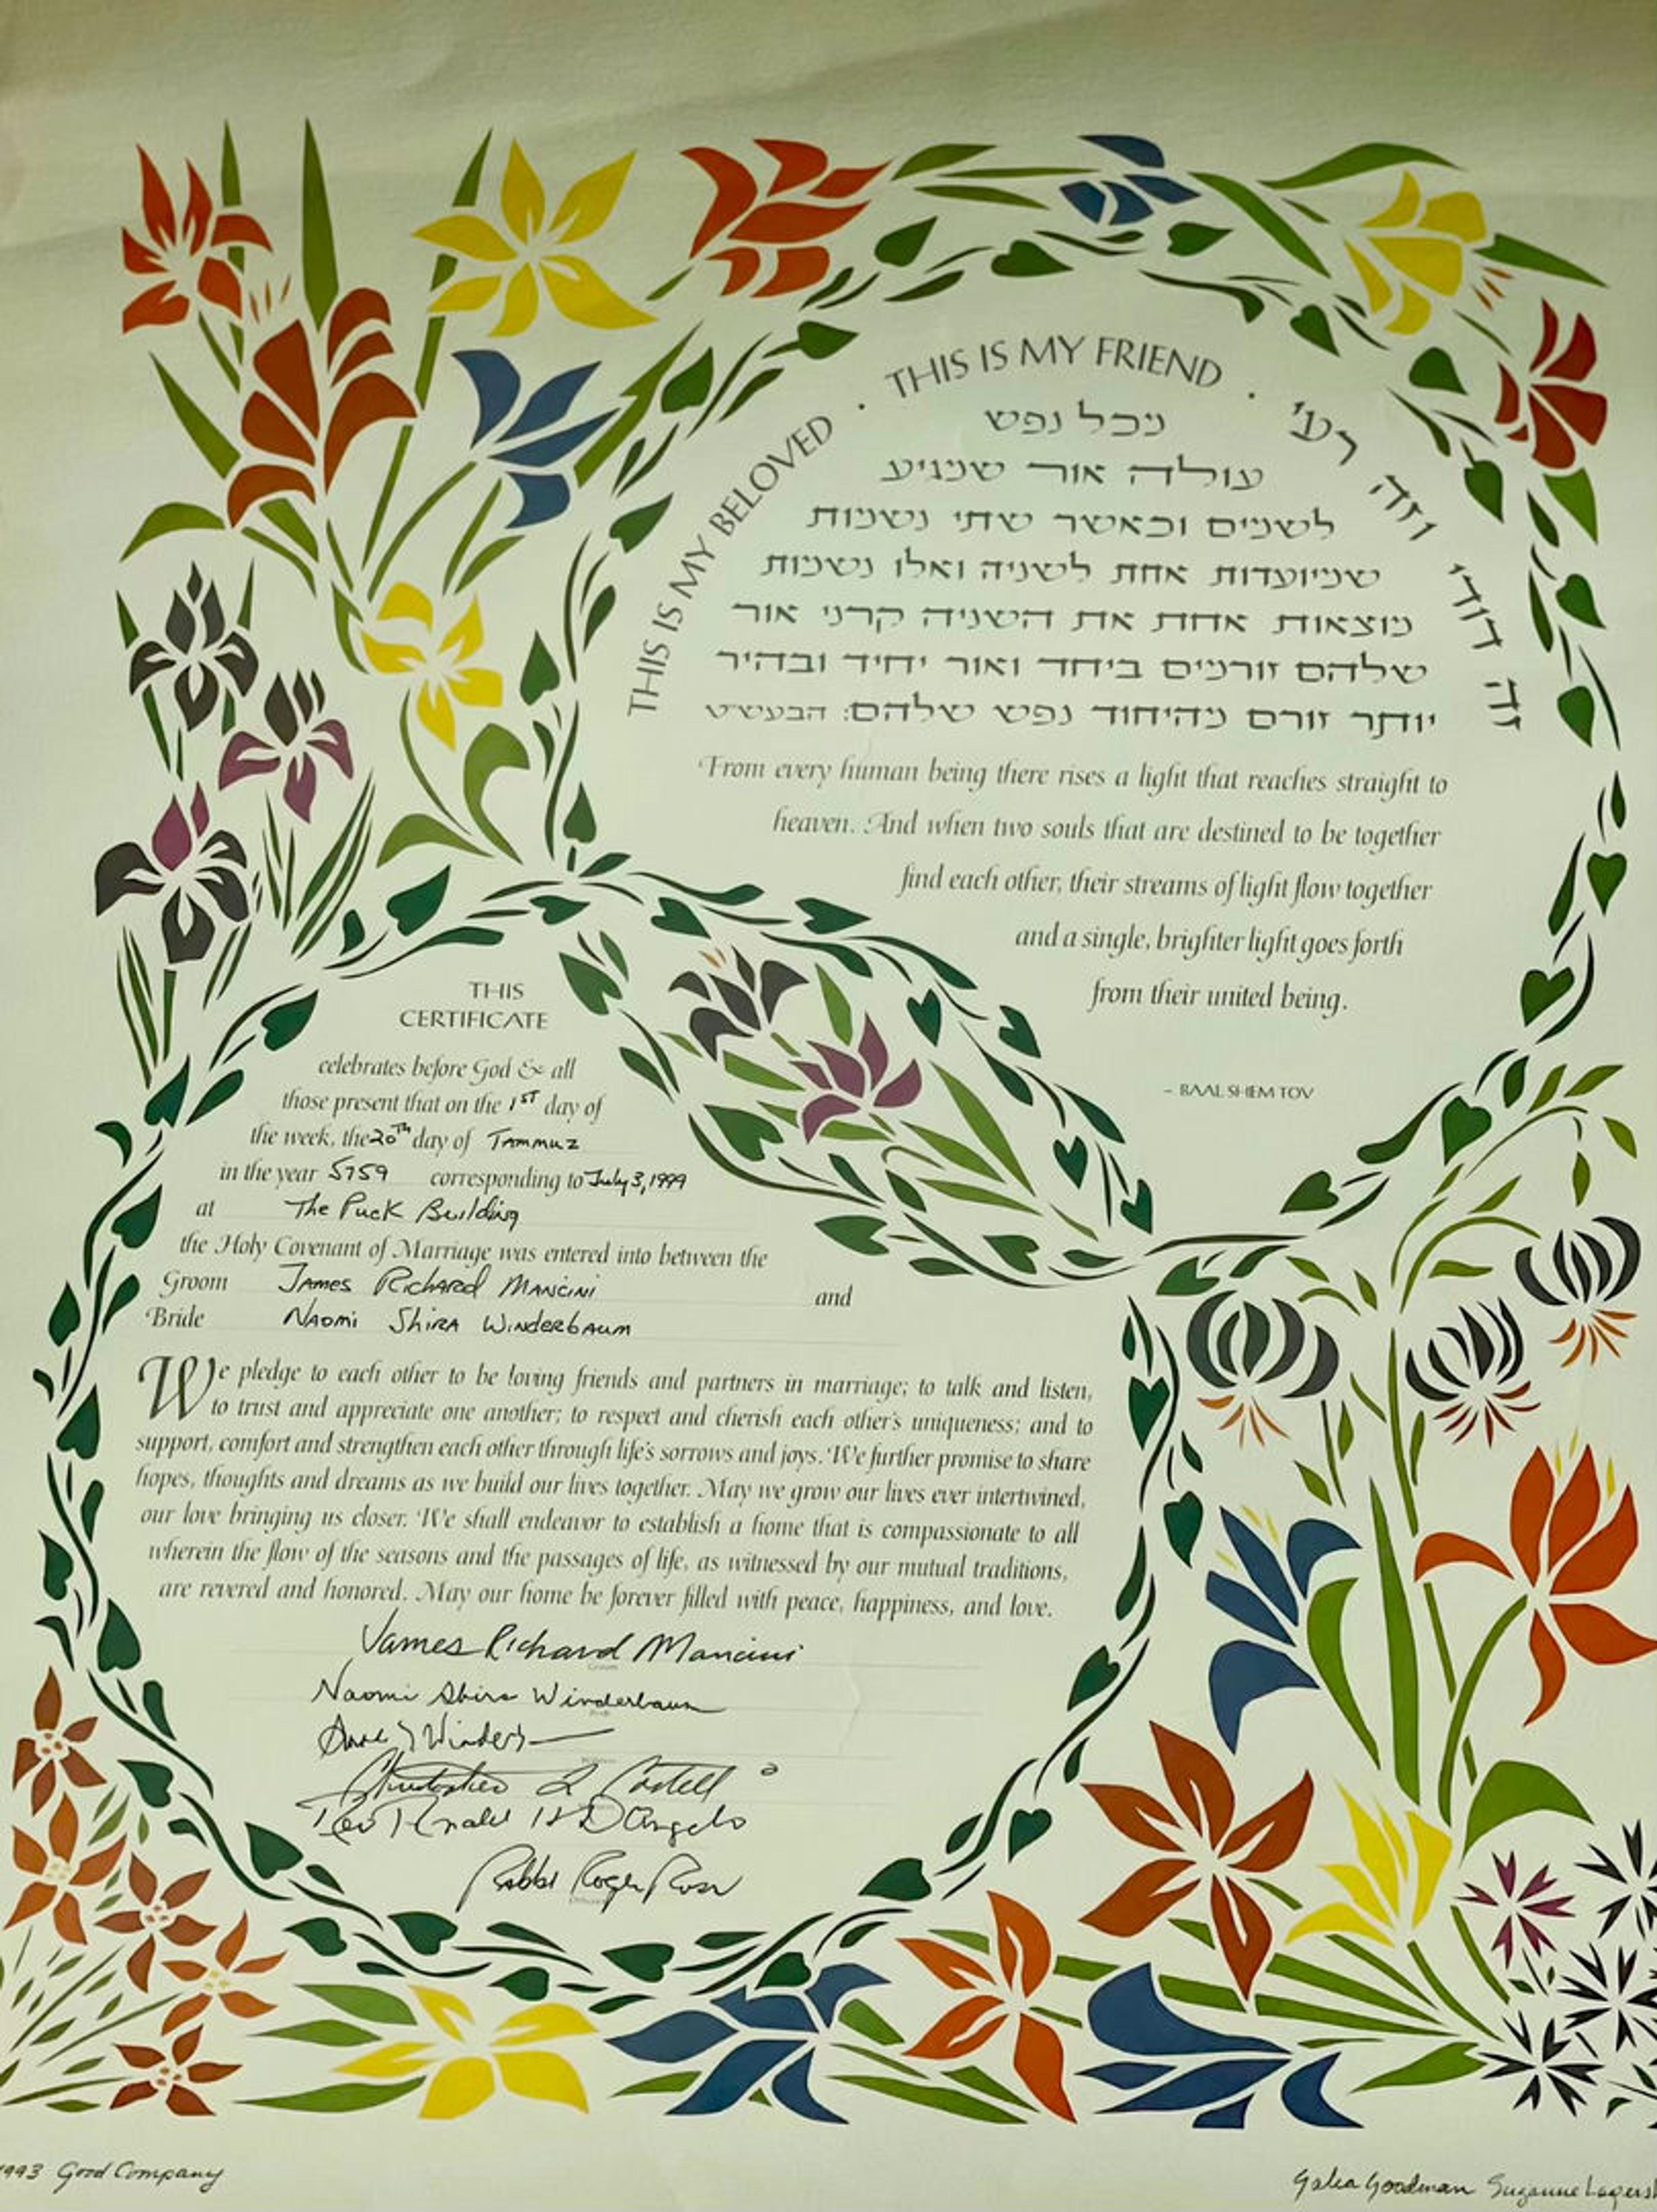 THIS IS MY BELOVED · THIS IS MY FRIEND · זה דודי וזה רעי
מכל נפש
עולה אור שמגיע
לשמים וכאשר שתי נשמות
שמיועדות אחת לשניה ואלו נשמות
מוצאות אחת את השניה קרני אור
שלהם זורמים ביחד ואור יחיד ובהיר
יותר זורם מהיחוד נפש שלהם: הבעש״ט
From every human being there rises a light that reaches straight to
heaven. And when two souls that are destined to be together
find each other, their streams of light flow together
and a single, brighter light goes forth
from their united being.
– BAAL SHEM TOV
THIS
CERTIFICATE
celebrates before God & all
those present that on the 1ST day of
the week, the 20th day of Tammuz
in the year 5759 corresponding to July 3, 1999
at The Puck Building
the Holy Covenant of Marriage was entered into between the
Groom James Richard Mancini and
Bride Naomi Shira Winderbaum
We pledge to each other to be loving friends and partners in marriage; to talk and listen,
to trust and appreciate one another; to respect and cherish each other's uniqueness; and to
support, comfort and strengthen each other through life's sorrows and joys. We further promise to share
hopes, thoughts and dreams as we build our lives together. May we grow our lives ever intertwined,
our love bringing us closer. We shall endeavor to establish a home that is compassionate to all
wherein the flow of the seasons and the passages of life, as witnessed by our mutual traditions,
are revered and honored. May our home be forever filled with peace, happiness, and love.
James Richard Mancini
Groom
Naomi Shira Winderbaum
Bride
Christopher
Rev D'Angelo
Rabbi Roger Ross
1993 Good Company
Galia Goodman Suzanne